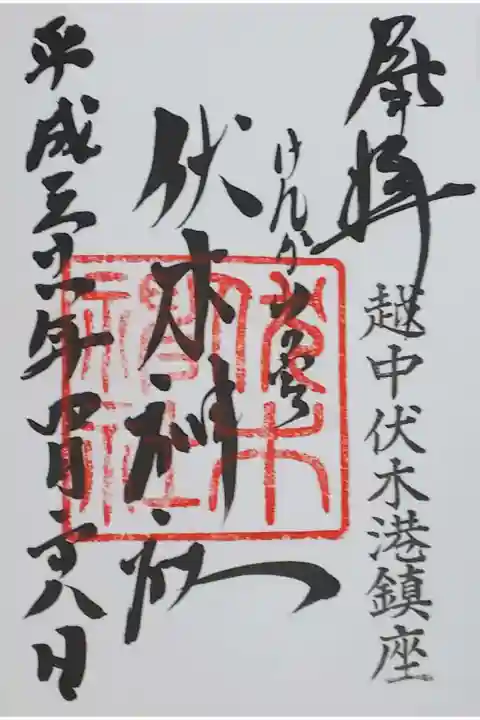 拝
越中伏木港鎮座
けんか山の宮
伏木神社
平成三十一年四月二十八日